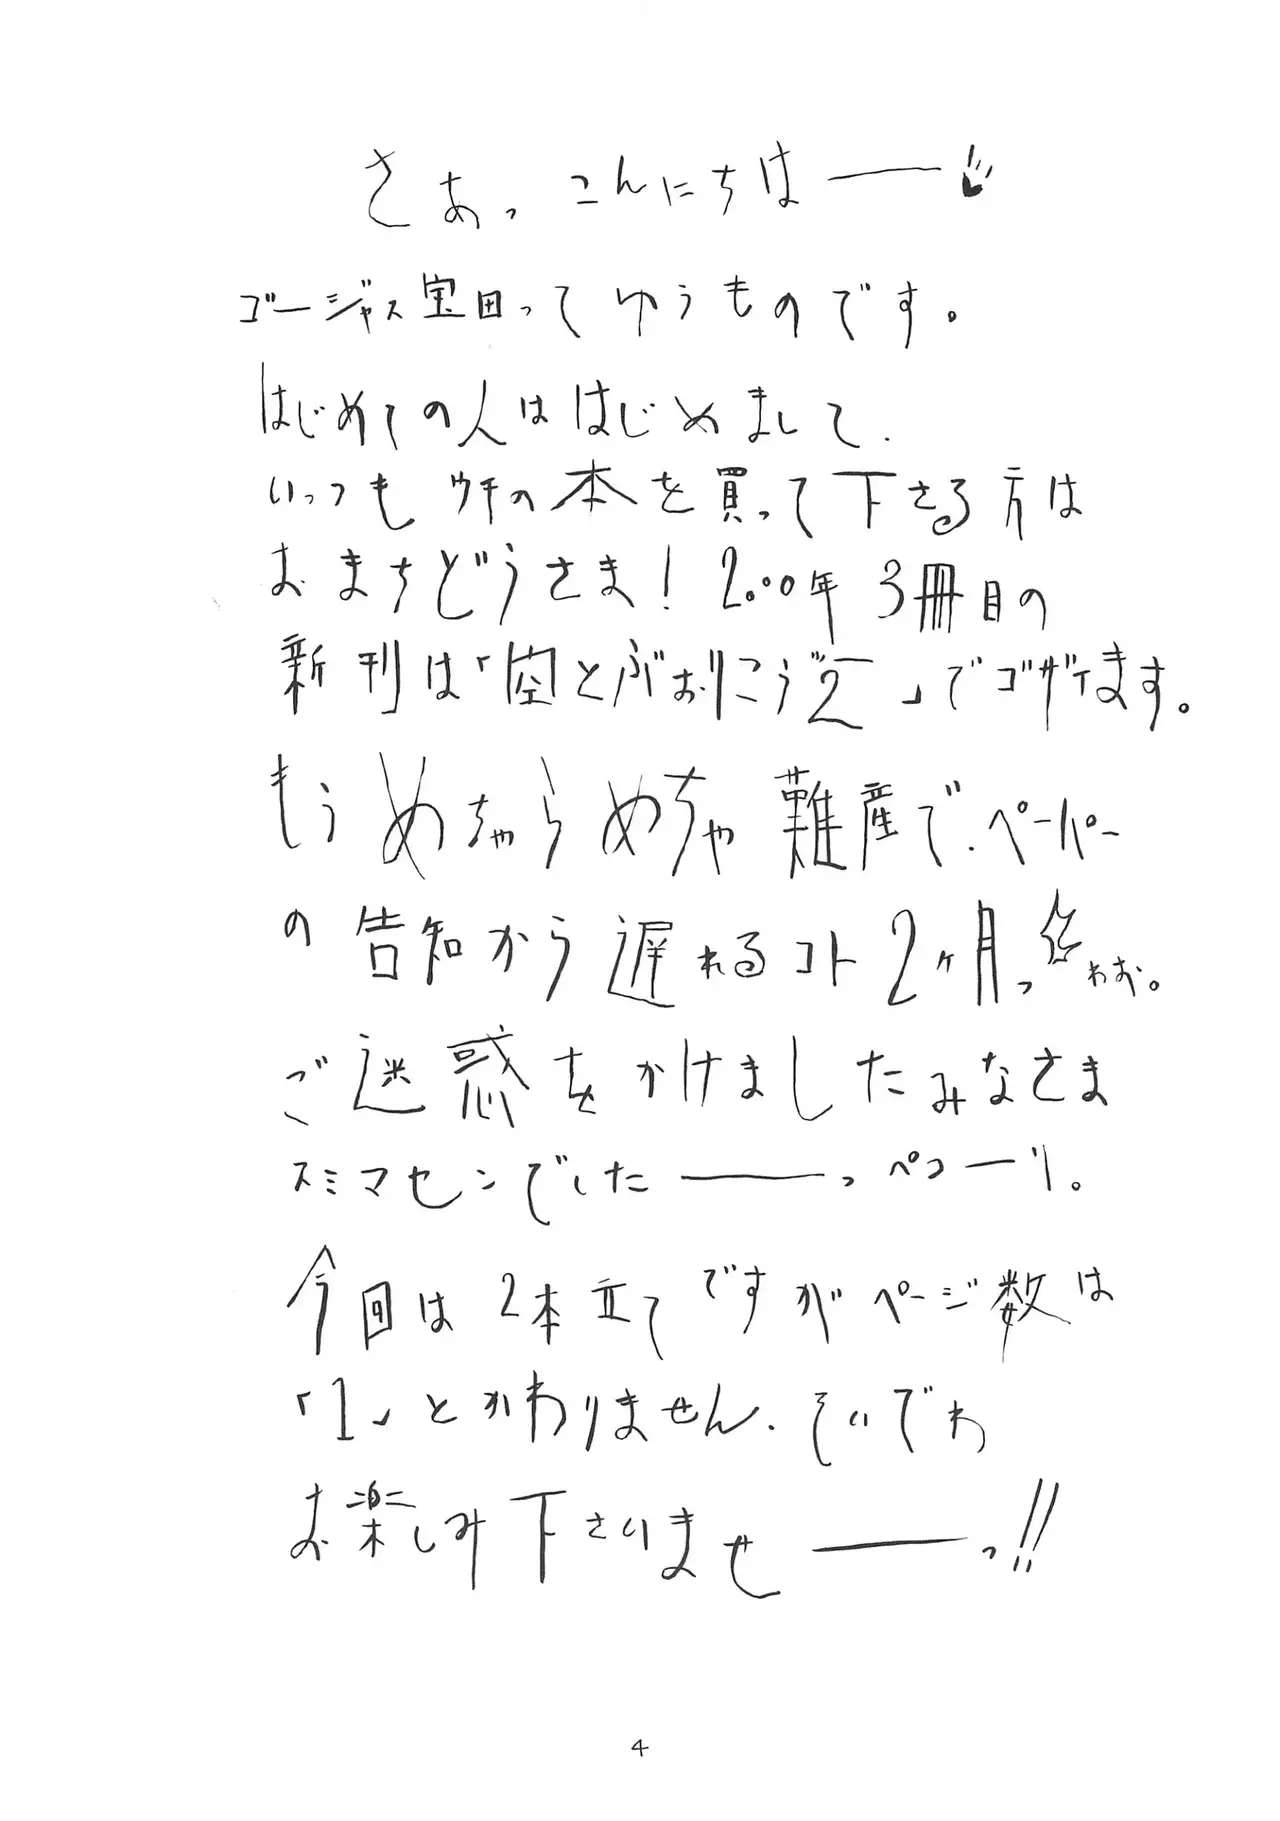 さぁっ こんにちはー
ゴージャス宝田ってゆうものです。
はじめての人ははじめまして.
いっつもウチの本を買って下さる方は
おまちどうさま! 2000年3冊目の
新刊は「空とぶおりこう2」でゴザイます。
もうめちゃらめちゃ難産で.ペーパー
の告知から遅れるコト2ヶ月っ わお。
ご迷惑をかけましたみなさま
スミマセンでしたーっ ペコーリ。
今回は2本立てですがページ数は
「1」とかわりません.そいでわ
お楽しみ下さいませーっ!!
4